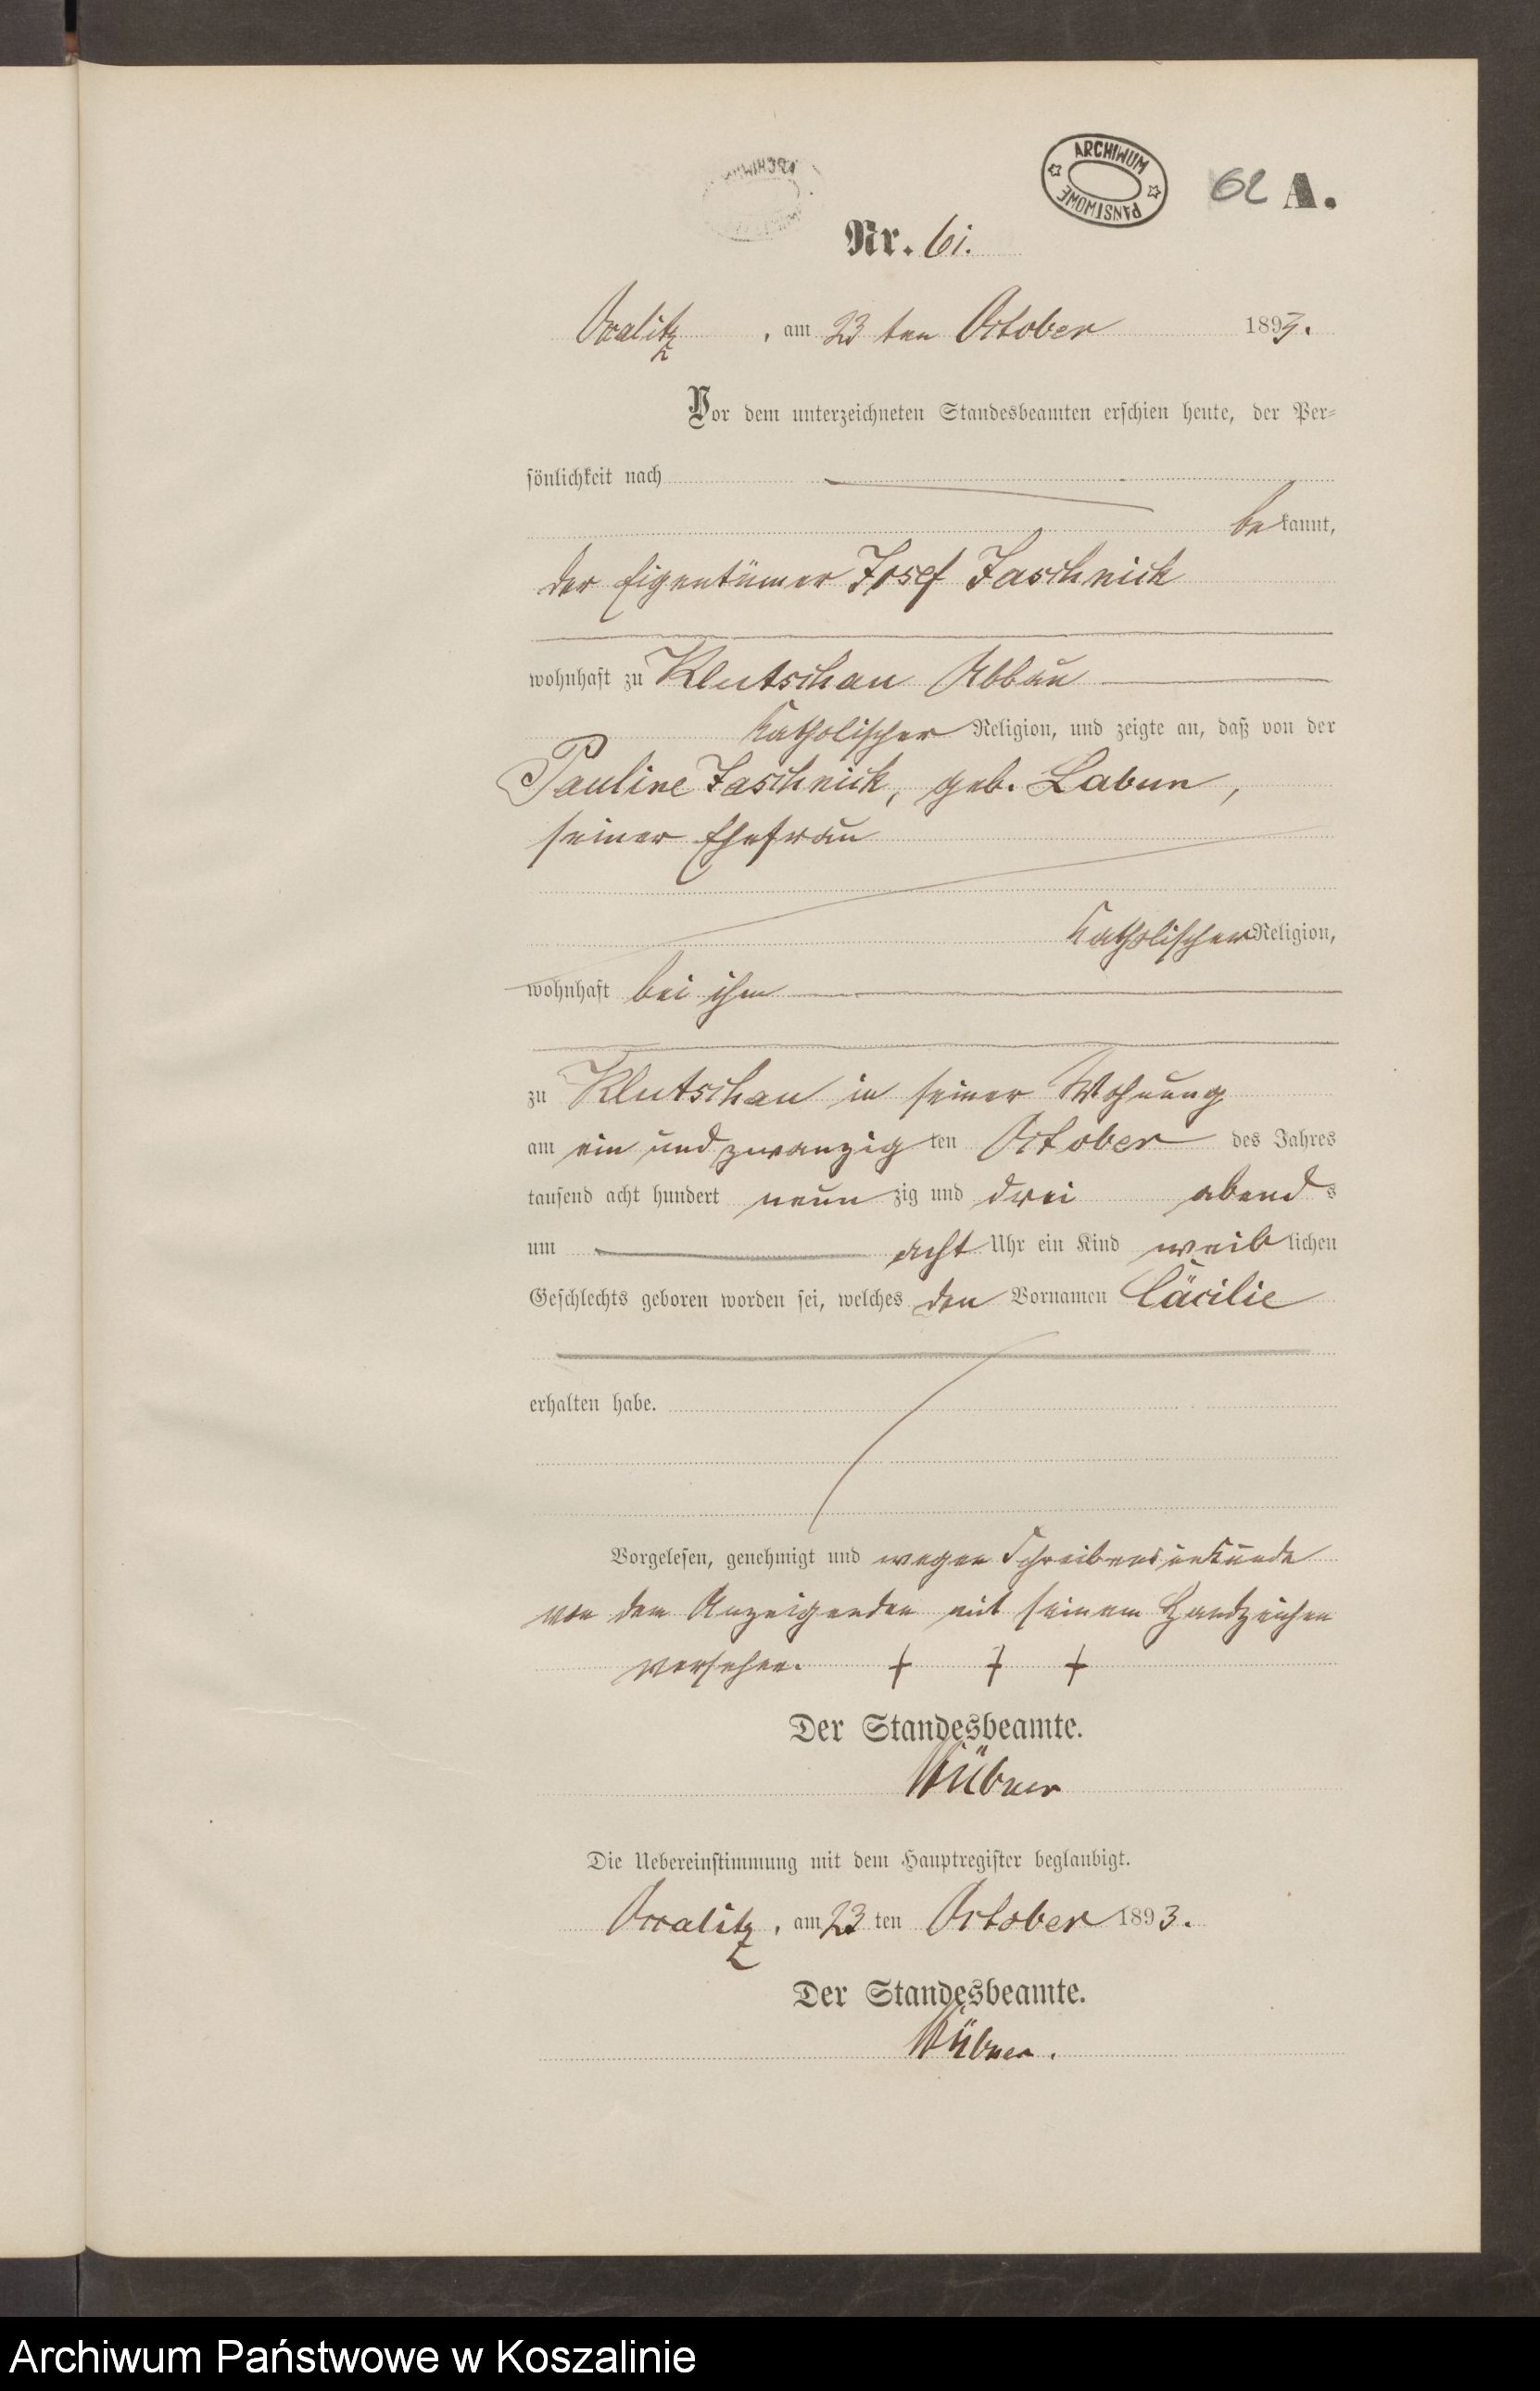 ARCHIWUM PAŃSTWOWE
62 A.
Nr. 61.
Oxalitz, am 23 ten October 1893.
Vor dem unterzeichneten Standesbeamten erschien heute, der Per-
sönlichkeit nach
bekannt,
der Eigentümer Josef Jaschnick
wohnhaft zu Klutschau Abbau
katholischer Religion, und zeigte an, daß von der
Pauline Jaschnick, geb. Labun,
seiner Ehefrau
katholischer Religion,
wohnhaft bei ihm
zu Klutschau in seiner Wohnung
am ein und zwanzig ten October des Jahres
tausend acht hundert neun zig und drei abends
um acht Uhr ein Kind weiblichen
Geschlechts geboren worden sei, welches den Vornamen Cäcilie
erhalten habe.
Vorgelesen, genehmigt und wegen Schreibensunkunde
von dem Anzeigenden mit seinem Handzeichen
versehen. + + +
Der Standesbeamte.
Hübner
Die Uebereinstimmung mit dem Hauptregister beglaubigt.
Oxalitz, am 23 ten October 1893.
Der Standesbeamte.
Hübner.
Archiwum Państwowe w Koszalinie